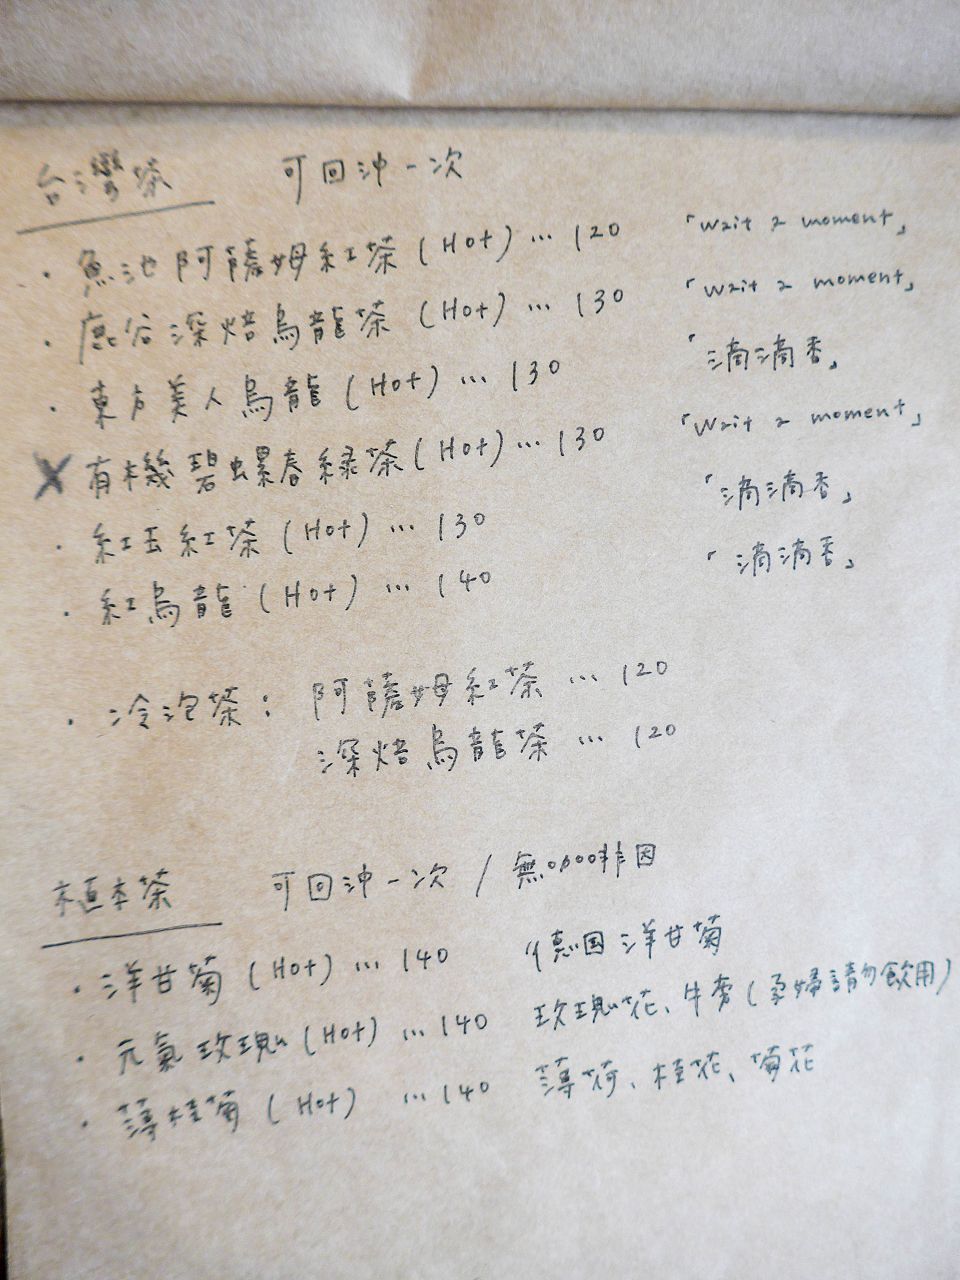 台灣茶 可回沖一次
· 魚池阿薩姆紅茶(Hot)…120 「wait a moment」
· 鹿谷深焙烏龍茶(Hot)…130 「wait a moment」
· 東方美人烏龍(Hot)…130 「滴滴香」
X 有機碧螺春綠茶(Hot)…130 「wait a moment」
· 紅玉紅茶(Hot)…130 「滴滴香」
· 紅烏龍(Hot)…140 「滴滴香」
· 冷泡茶: 阿薩姆紅茶…120
深焙烏龍茶…120
植本茶 可回沖一次 / 無咖啡因
· 洋甘菊(Hot)…140 德国洋甘菊
· 元氣玫瑰(Hot)…140 玫瑰花、牛蒡(孕婦請勿飲用)
· 薄桂菊(Hot) …140 薄荷、桂花、菊花